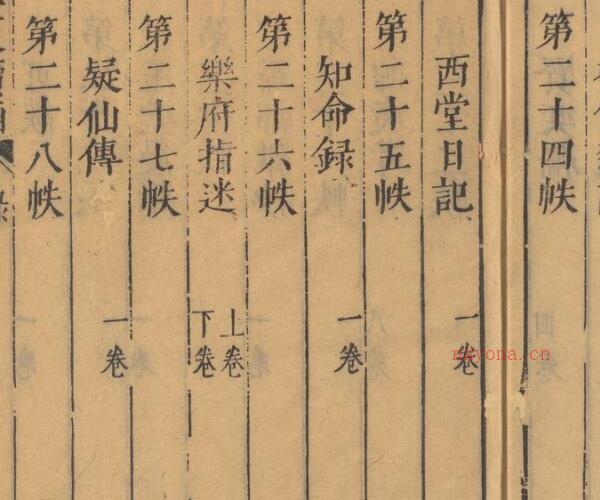 第二十四帙
西堂日記 一卷
第二十五帙
知命録 一卷
第二十六帙
樂府指迷 上卷 下卷
第二十七帙
疑仙傳 一卷
第二十八帙
nayona.cn